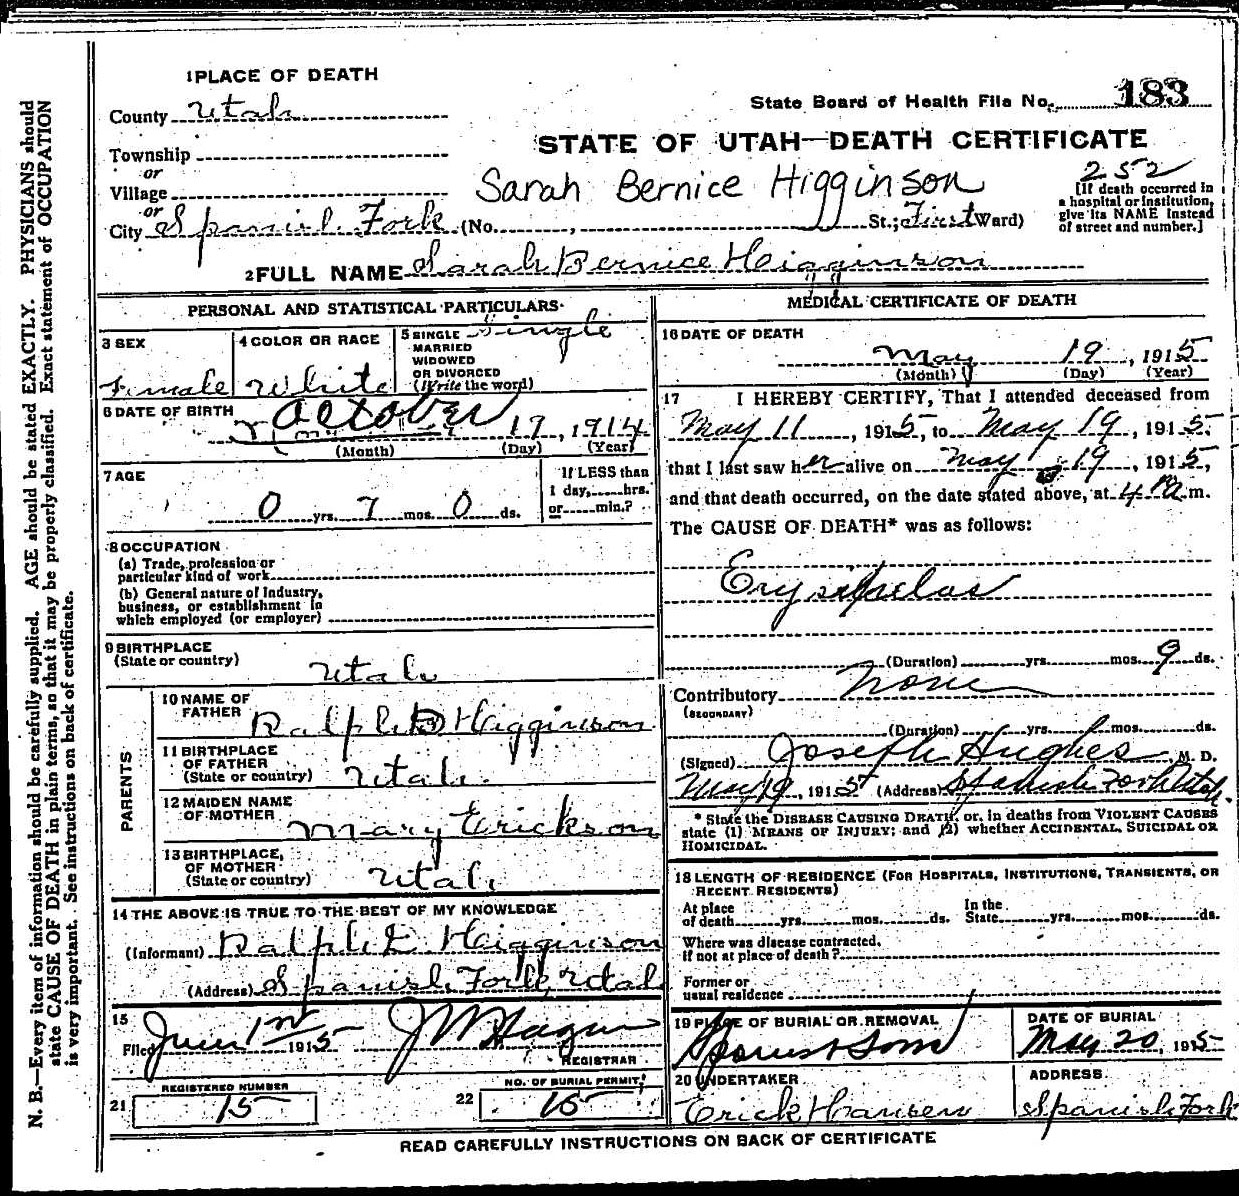 1 PLACE OF DEATH
County Utah
State Board of Health File No. 183
STATE OF UTAH—DEATH CERTIFICATE
Township
or
Village
Sarah Bernice Higginson
252
[If death occurred in a hospital or institution, give its NAME instead of street and number.]
or
City Spanish Fork (No. , St.; First Ward)
2 FULL NAME Sarah Bernice Higginson
PERSONAL AND STATISTICAL PARTICULARS
3 SEX
Female
4 COLOR OR RACE
White
5 SINGLE
MARRIED
WIDOWED
OR DIVORCED
(Write the word)
Single
6 DATE OF BIRTH
October 19, 1914
(Month) (Day) (Year)
7 AGE
0 yrs. 7 mos. 0 ds.
If LESS than
1 day, hrs.
or min.?
8 OCCUPATION
(a) Trade, profession or
particular kind of work
(b) General nature of Industry,
business, or establishment in
which employed (or employer)
9 BIRTHPLACE
(State or country)
Utah
PARENTS
10 NAME OF
FATHER
Ralph Higginson
11 BIRTHPLACE
OF FATHER
(State or country)
Utah.
12 MAIDEN NAME
OF MOTHER
Mary Erickson
13 BIRTHPLACE,
OF MOTHER
(State or country)
Utah
14 THE ABOVE IS TRUE TO THE BEST OF MY KNOWLEDGE
(Informant) Ralph E Higginson
(Address) Spanish Fork, Utah
15
Filed June 1st 1915
REGISTRAR
REGISTERED NUMBER
21 15
NO. OF BURIAL PERMIT
22 15
MEDICAL CERTIFICATE OF DEATH
16 DATE OF DEATH
May 19, 1915
(Month) (Day) (Year)
17 I HEREBY CERTIFY, That I attended deceased from
May 11, 1915, to May 19, 1915.
that I last saw her alive on May 19, 1915,
and that death occurred, on the date stated above, at 4 m.
The CAUSE OF DEATH* was as follows:
Erysipelas
(Duration) yrs. mos. 9 ds.
Contributory None
(SECONDARY)
(Duration) yrs. mos. ds.
(Signed) Joseph Hughes, M. D.
May 19, 1915 (Address) Spanish Fork Utah.
* State the DISEASE CAUSING DEATH, or, in deaths from VIOLENT CAUSES
state (1) MEANS OF INJURY; and (2) whether ACCIDENTAL, SUICIDAL OR
HOMICIDAL.
18 LENGTH OF RESIDENCE (FOR HOSPITALS, INSTITUTIONS, TRANSIENTS, OR
RECENT RESIDENTS)
At place
of death yrs. mos. ds.
In the
State yrs. mos. ds.
Where was disease contracted,
If not at place of death?
Former or
usual residence
19 PLACE OF BURIAL OR REMOVAL
DATE OF BURIAL
May 20, 1915
20 UNDERTAKER
Erick Hansen
ADDRESS
Spanish Fork
READ CAREFULLY INSTRUCTIONS ON BACK OF CERTIFICATE
N. B.—Every item of information should be carefully supplied. AGE should be stated EXACTLY. PHYSICIANS should
state CAUSE OF DEATH in plain terms, so that it may be properly classified. Exact statement of OCCUPATION
is very important. See instructions on back of certificate.